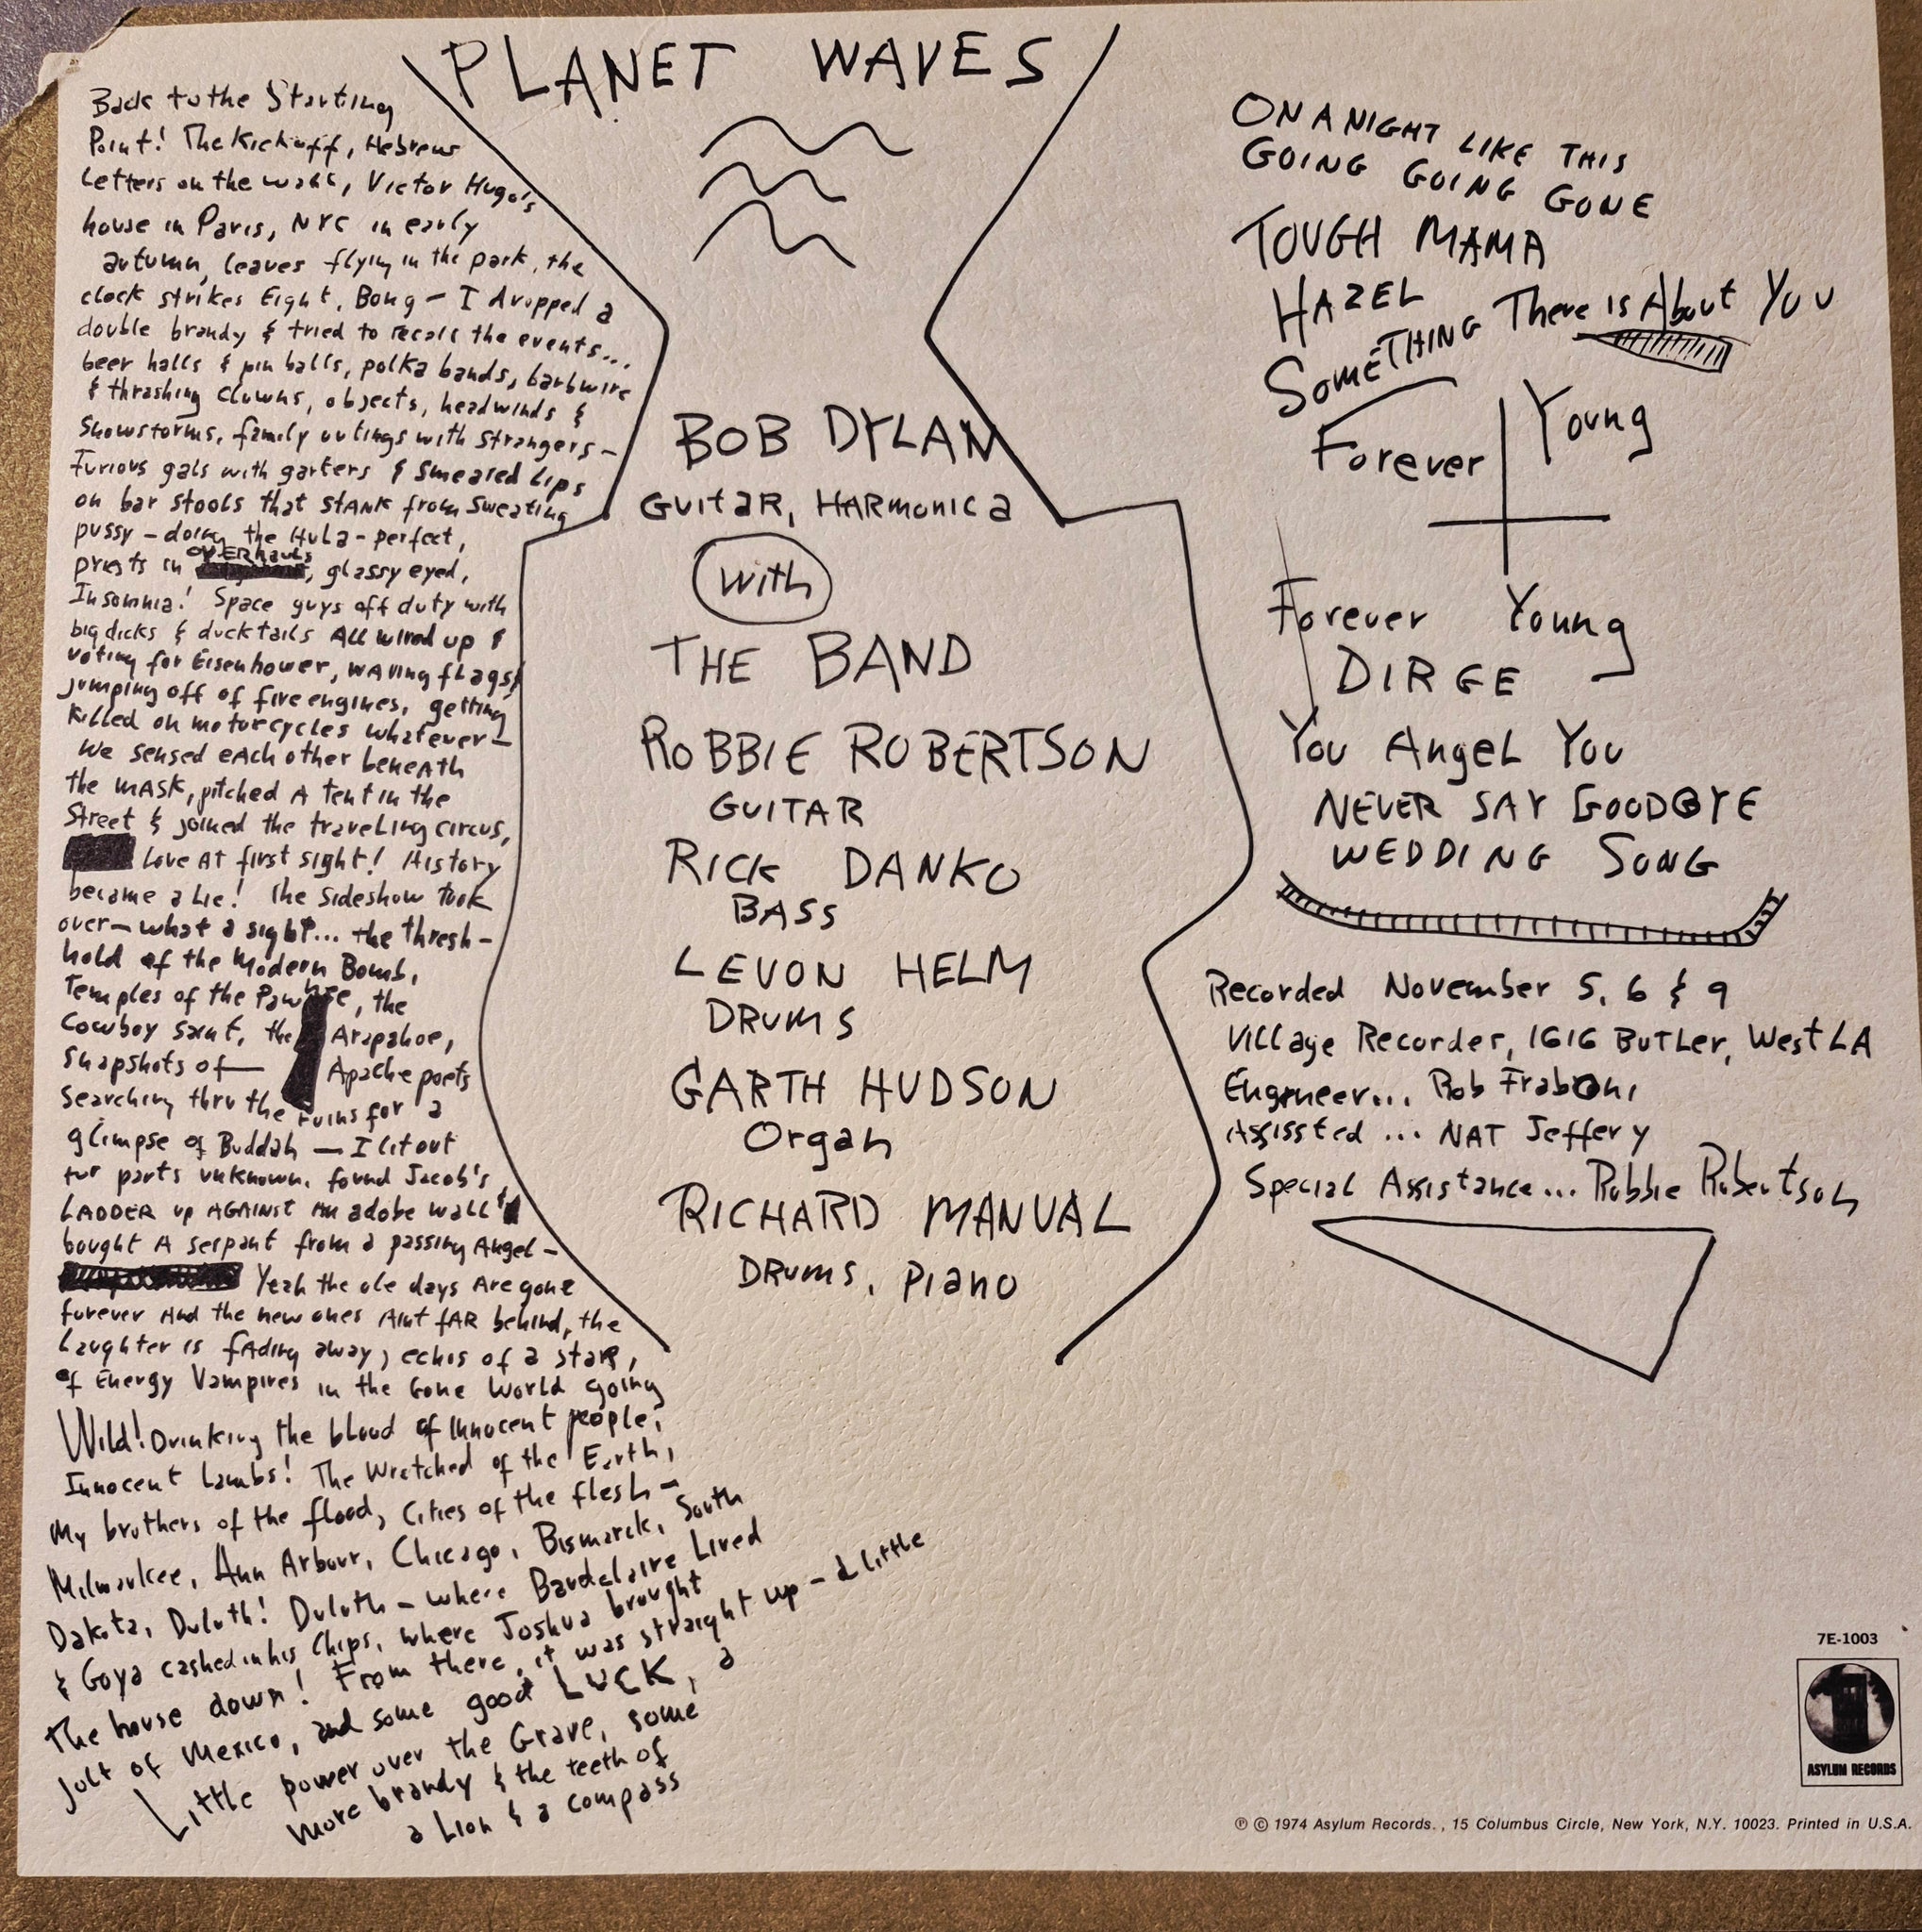 PLANET WAVES
Back to the Starting
Point! The Kickoff, Hebrew
Letters on the wall, Victor Hugo's
house in Paris, NYC in early
autumn, leaves flying in the park, the
clock strikes Eight, Bong — I dropped a
double brandy & tried to recall the events...
beer halls & pin balls, polka bands, barbwire
& thrashing clowns, objects, headwinds &
Snowstorms, family outings with strangers —
Furious gals with garters & smeared Lips
on bar stools that STANK from sweating
pussy — doing the Hula - perfect,
priests in OVERhauls, glassy eyed,
Insomnia! Space guys off duty with
big dicks & ducktails ALL wired up &
voting for Eisenhower, waving flags &
jumping off of fire engines, getting
killed on motorcycles whatever —
We sensed each other beneath
the MASK, pitched A tent in the
Street & joined the traveling circus,
Love At first sight! History
became a Lie! The sideshow took
over — what a sight... the thresh-
hold of the Modern Bomb,
Temples of the Pawnee, the
Cowboy saint, the Arapahoe,
snapshots of — Apache poets
searching thru the ruins for a
glimpse of Buddah — I lit out
for parts unknown, found Jacob's
LADDER up AGAINST An adobe wall &
bought A serpant from a passing Angel —
Yeah the ole days Are gone
forever And the new ones Aint fAR behind, the
Laughter is fAding away, echos of a star,
of Energy Vampires in the Gone World going
Wild! Drinking the blood of innocent people,
Innocent Lambs! The Wretched of the Earth,
My brothers of the flood, Cities of the flesh —
Milwaukee, Ann Arbour, Chicago, Bismarck, South
Dakota, Duluth! Duluth — where Baudelaire Lived
& Goya cashed in his Chips, where Joshua brought
the house down! From there, it was straight up — a Little
jolt of Mexico, and some good LUCK, a
Little power over the Grave, some
more brandy & the teeth of
a Lion & a compass
BOB DYLAN
GUITAR, HARMONICA
with
THE BAND
ROBBIE ROBERTSON
GUITAR
RICK DANKO
BASS
LEVON HELM
DRUMS
GARTH HUDSON
Organ
RICHARD MANUAL
DRUMS, PIANO
ON A NIGHT LIKE THIS
GOING GOING GONE
TOUGH MAMA
HAZEL
SOMETHING There is About You
Forever Young
Forever Young
DIRGE
You Angel You
NEVER SAY GOODBYE
WEDDING SONG
Recorded November 5, 6 & 9
Village Recorder, 1616 Butler, West LA
Engineer... Rob Fraboni
Assissted ... NAT Jeffery
Special Assistance... Robbie Robertson
7E-1003
ASYLUM RECORDS
℗ © 1974 Asylum Records., 15 Columbus Circle, New York, N.Y. 10023. Printed in U.S.A.